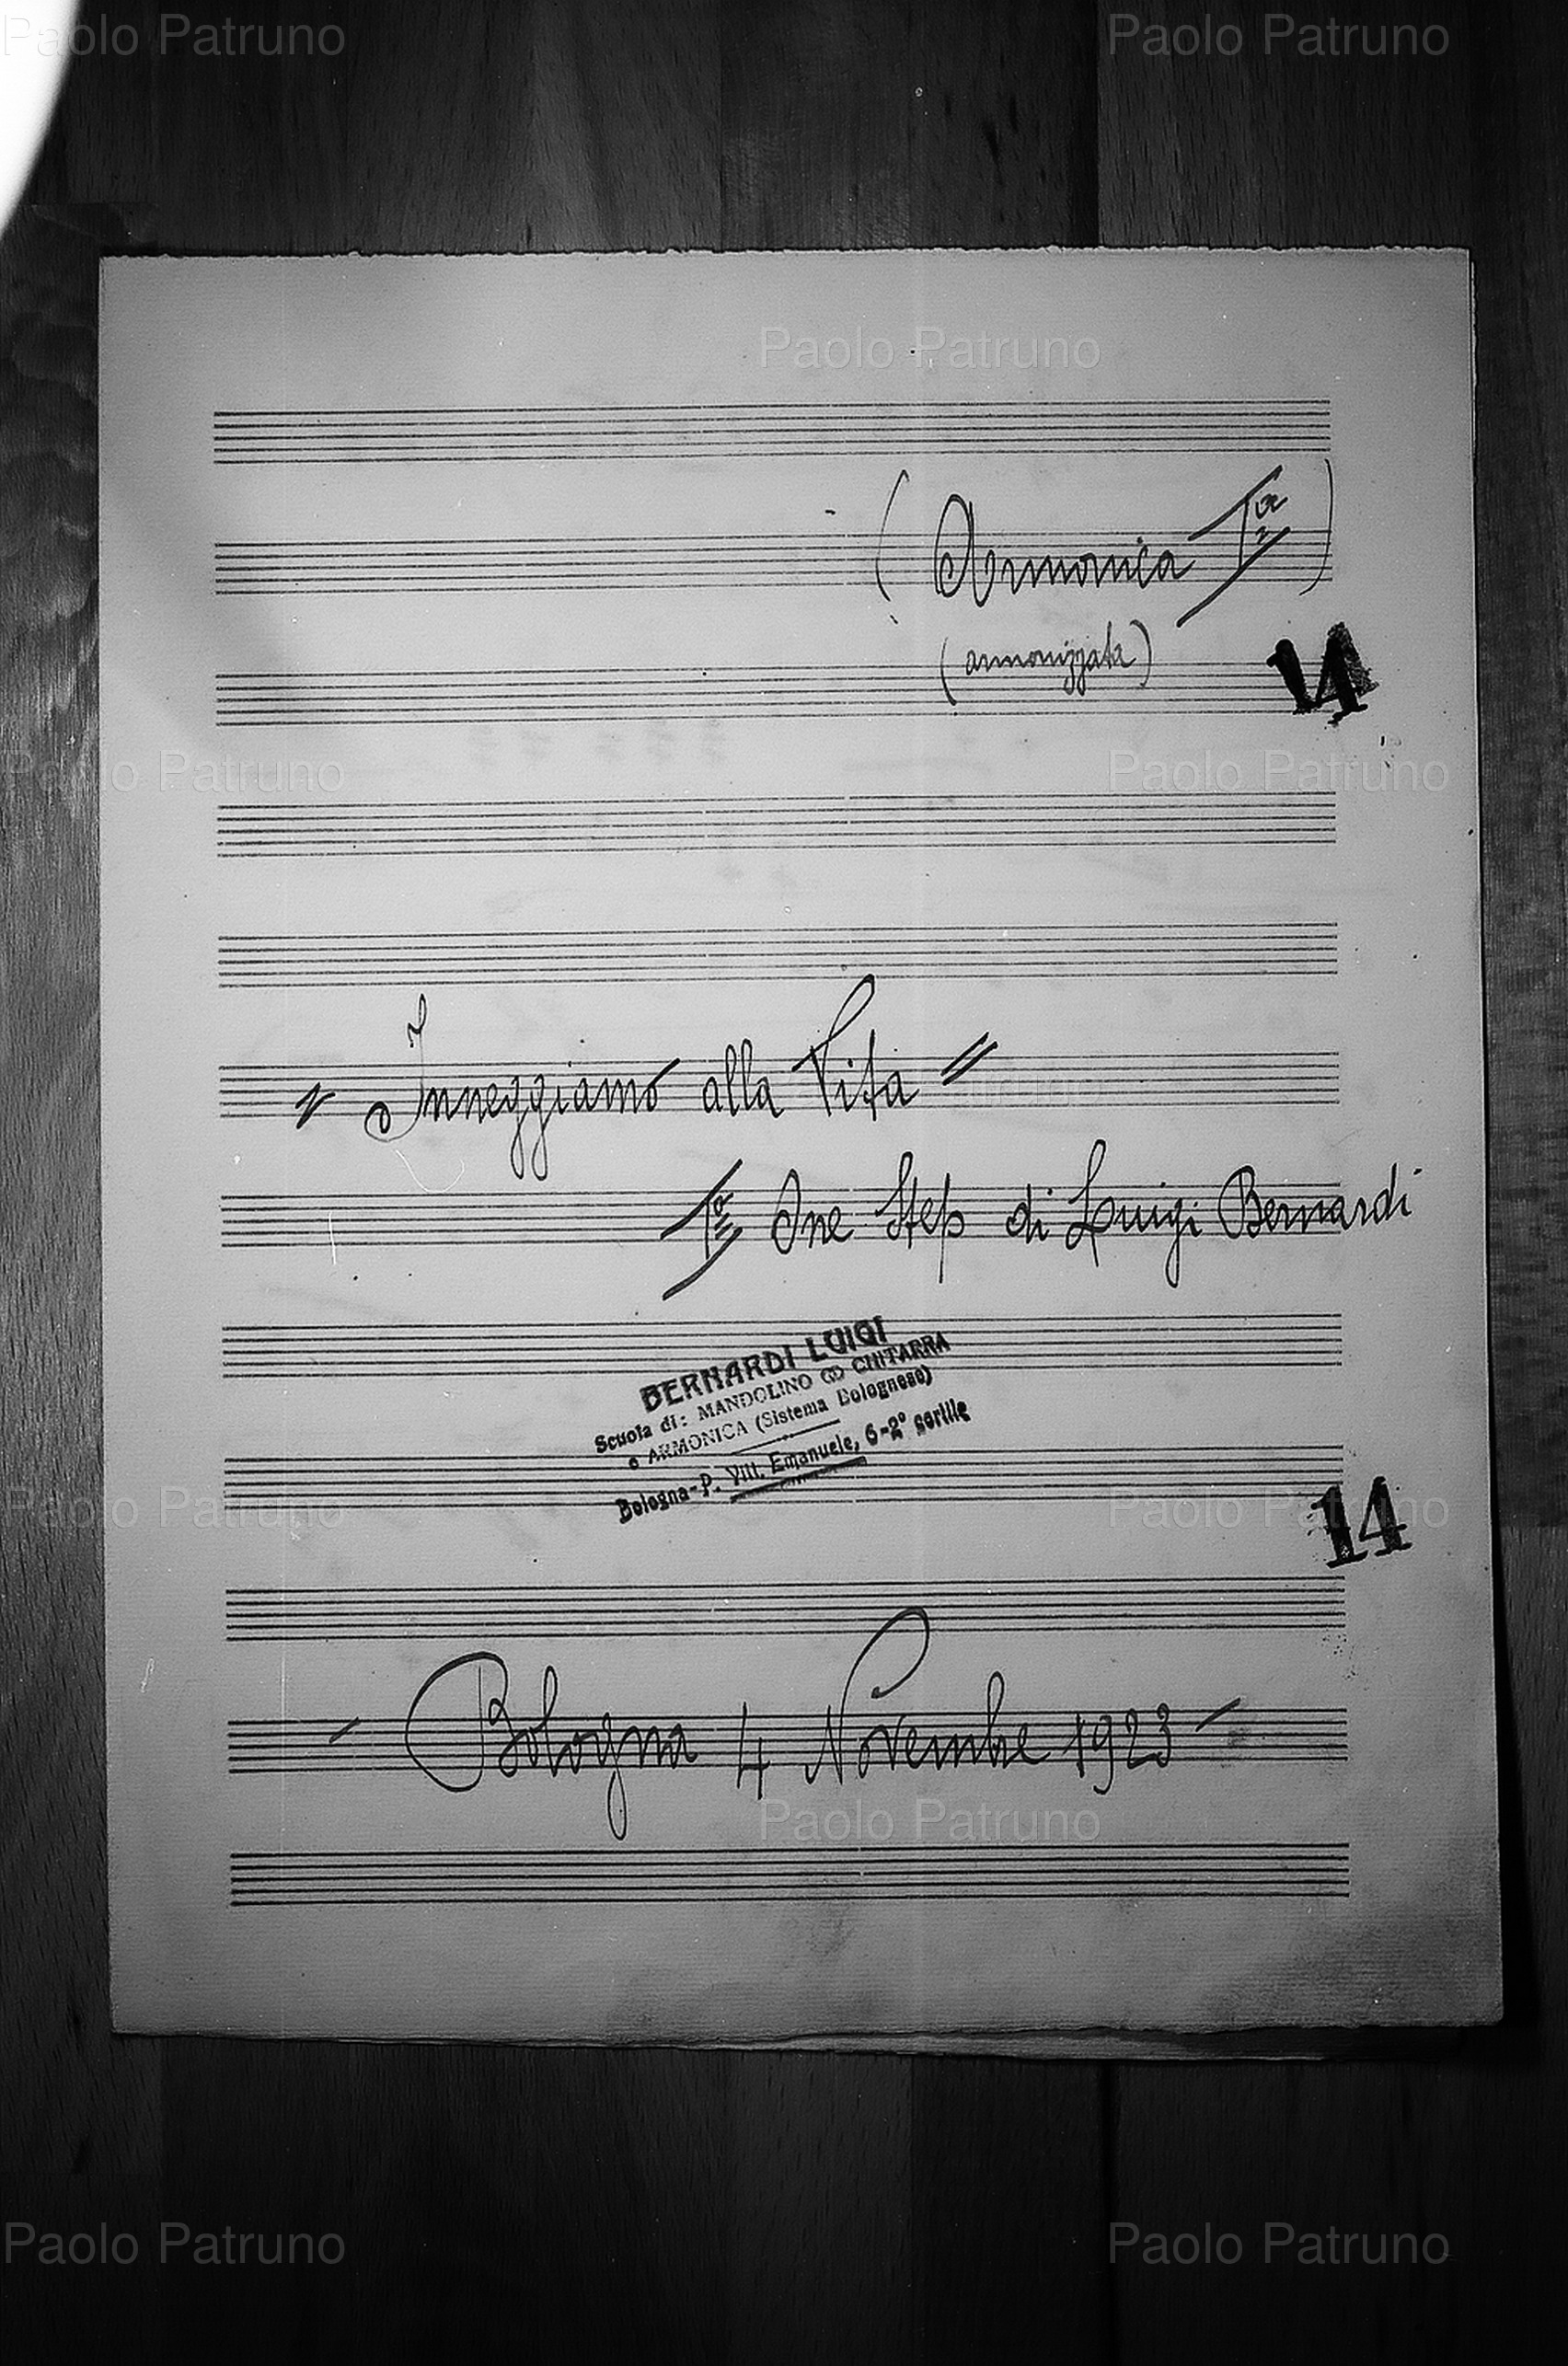 Paolo Patruno Paolo Patruno
Paolo Patruno
(Armonica Iª)
(armonizzata)
14
Paolo Patruno Paolo Patruno
" Inneggiamo alla Vita "
One Step di Luigi Bernardi
BERNARDI LUIGI
Scuola di: MANDOLINO CHITARRA
e ARMONICA (Sistema Bolognese)
Bologna-P. Vitt. Emanuele, 6-2° cortile
Paolo Patruno Paolo Patruno
14
- Bologna 4 Novembre 1923 -
Paolo Patruno
Paolo Patruno Paolo Patruno